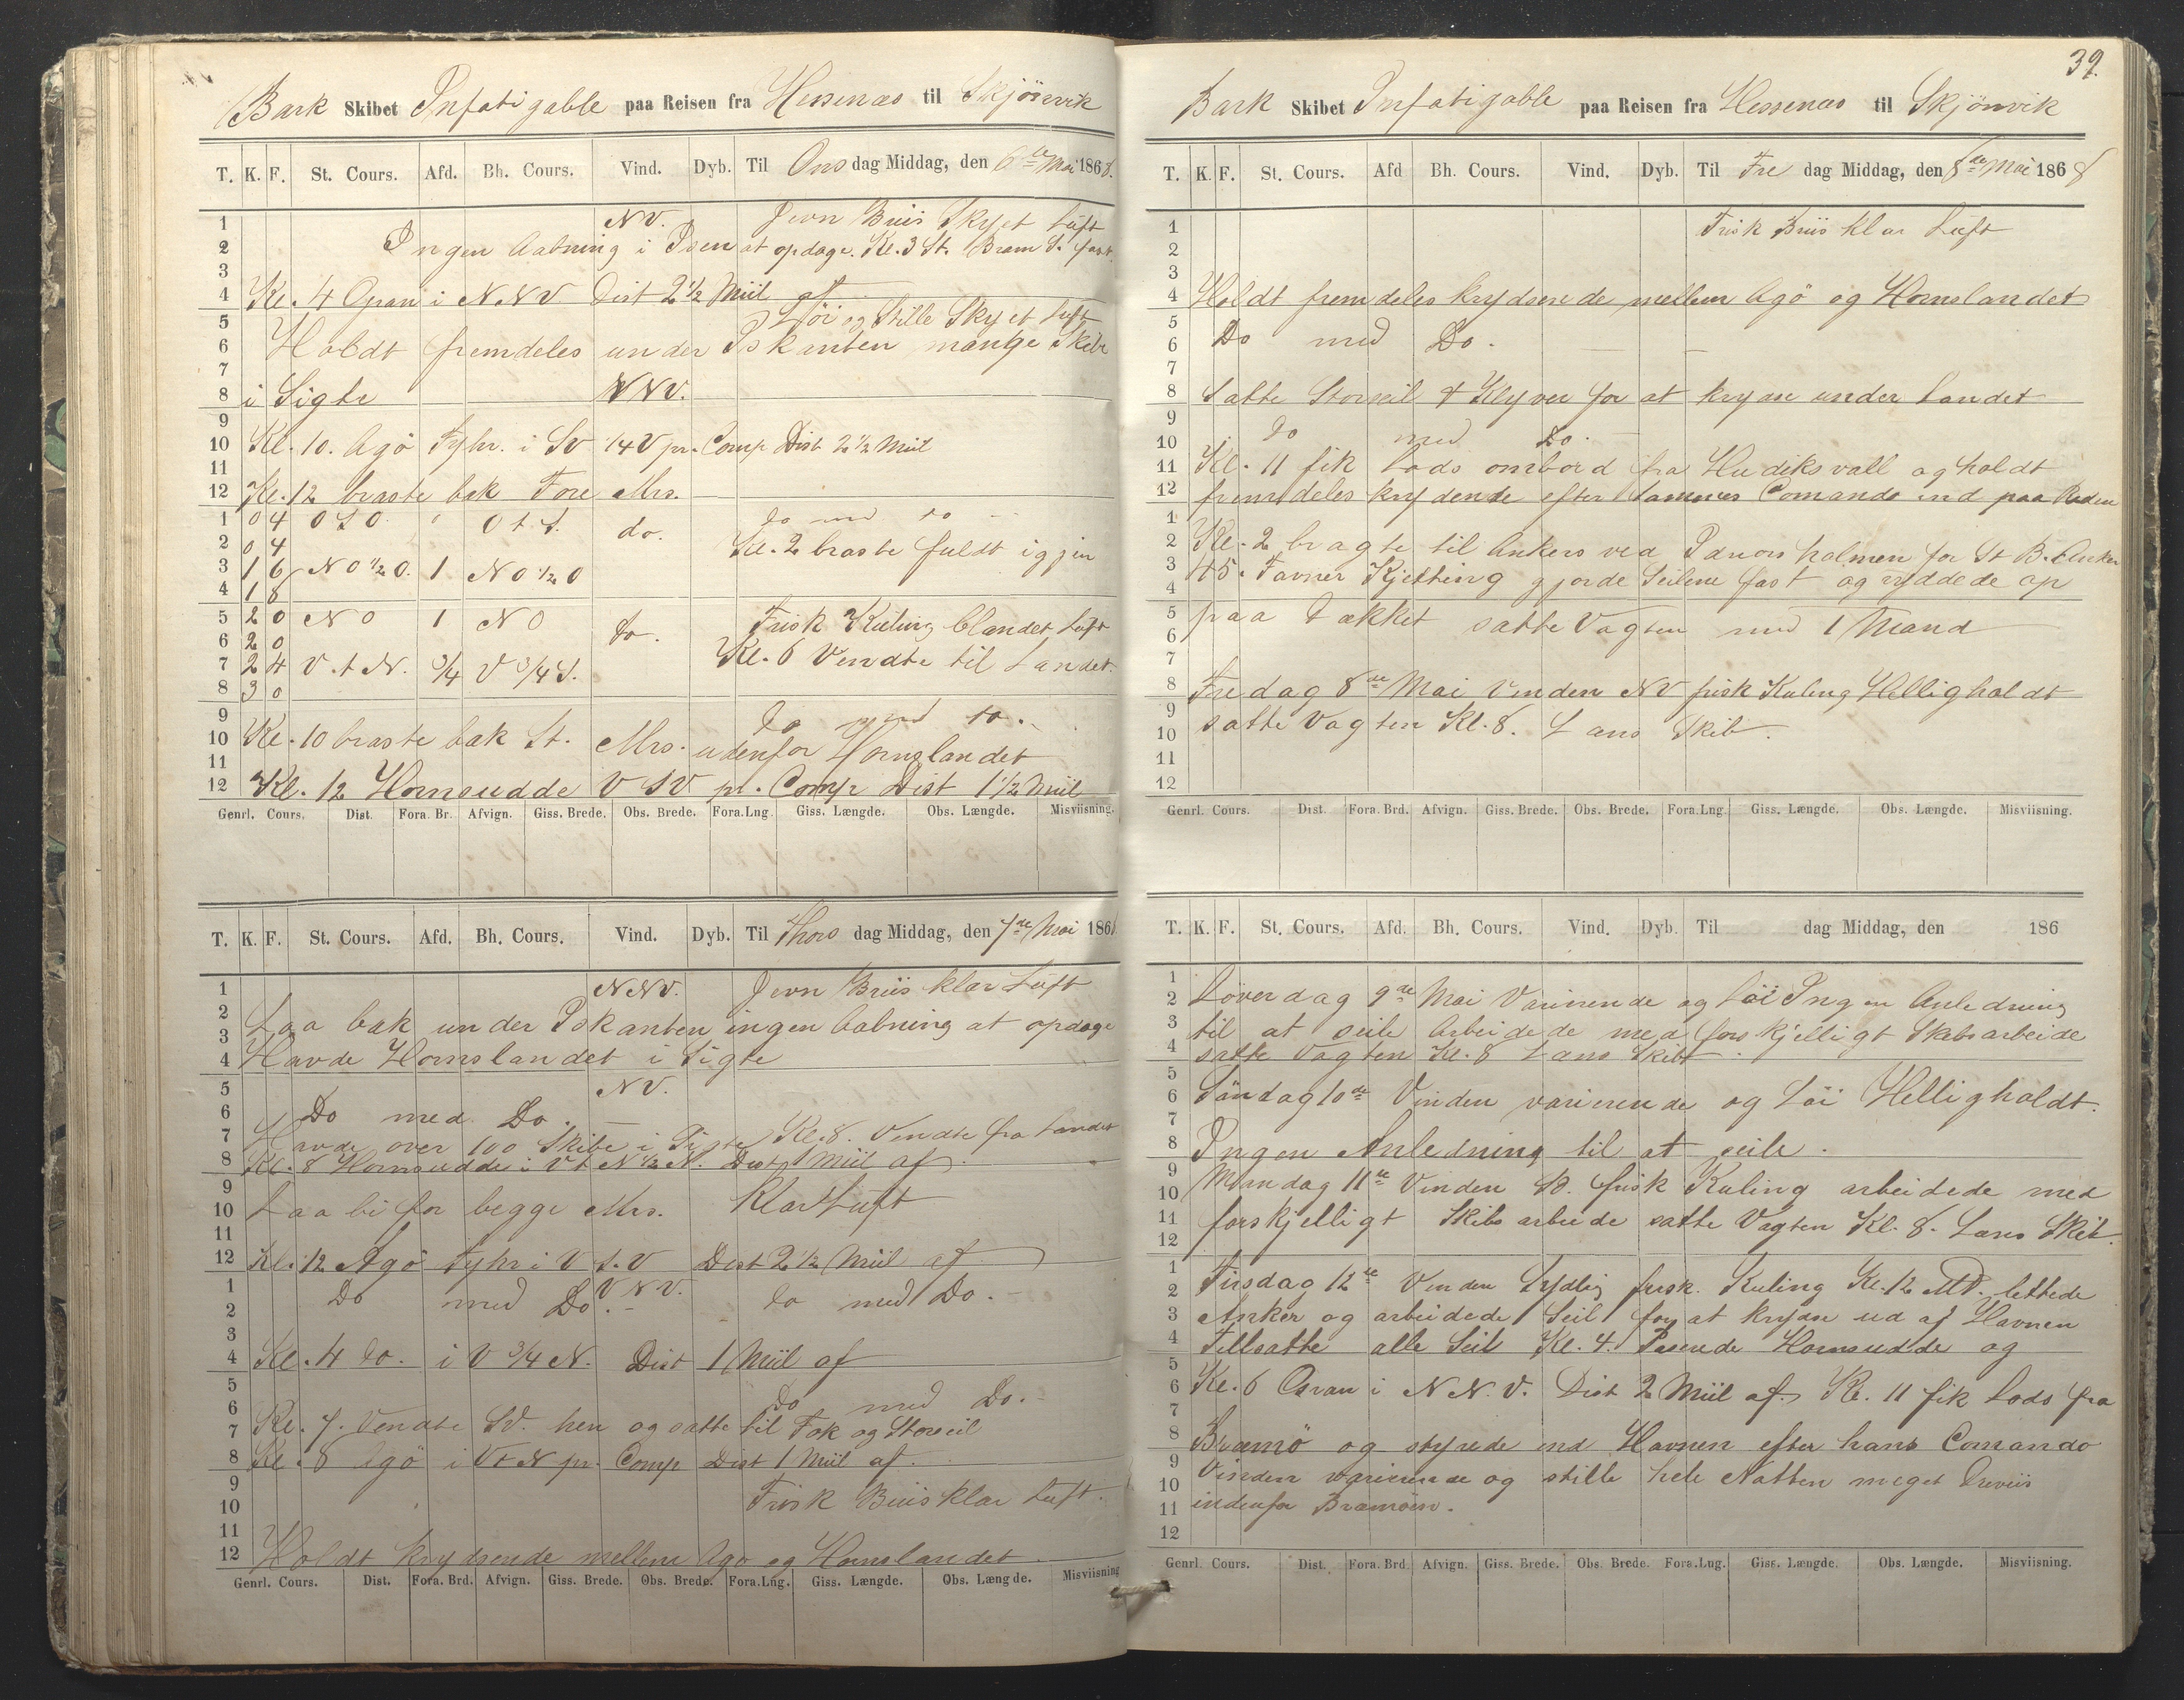 Bark Skibet Infatigable paa Reisen fra Hessenæs til Skjönvik
T. K. F. St. Cours. Afd. Bh. Cours. Vind. Dyb. Til Ons dag Middag, den 6te Mai 1868.
1 NV. Jevn Briis Skyet Luft
2 Ingen Aabning i Isen at opdage. Kl. 3 St. Bram S. fast.
3
4 Kl. 4 Gran i NNV Dist 2 1/2 Miil af
5 Löi og Stille Skyet Luft
6 Holdt fremdeles under Iskanten mange Skibe
7
8 i Sigte NNV.
9
10 Kl. 10. Agö Fyhr. i SV 1/4 V pr. Comp Dist 2 1/2 Miil
11
12 Kl. 12 braste bak Fore Mrs.
1 0 4 OSO. " O t. S. do. do med do
2 0 4 Kl. 2 braste fuldt igjen
3 1 6 NO 1/2 O. 1 NO 1/2 O
4 1 8
5 2 0 NO 1 NO do. Frisk Kuling blandet Luft
6 2 0 Kl. 6 Vendte til Landet.
7 2 4 V. t N. 3/4 V 3/4 S.
8 3 0
9 do med do.
10 Kl. 10 braste bak St. Mrs. udenfor Hornslandet
11
12 Kl. 12 Hornsudde V SV pr. Comp Dist 1 1/2 Miil
Genrl. Cours. Dist. Fora. Br. Afvign. Giss. Brede. Obs. Brede. Fora. Lng. Giss. Længde. Obs. Længde. Misviisning.
T. K. F. St. Cours. Afd. Bh. Cours. Vind. Dyb. Til Thors dag Middag, den 7de Mai 186
1 NNV. Jevn Briis klar Luft
2 Laa bak under Iskanten ingen Aabning at opdage
3
4 Havde Hornslandet i Sigte
5 NV.
6 Do med Do.
7 Havde over 100 Skibe i Sigte Kl. 8. Vendte fra Landet
8 Kl. 8 Hornsudde i V t N 1/2 N. Dist 1 Miil af.
9
10 Laa bi for begge Mrs. Klar Luft
11
12 Kl. 12 Agö Fyhr i V S. V Dist 2 1/2 Miil af
1 Do med Do. VNV. do med Do.
2
3
4 Kl. 4 do. i V 3/4 N. Dist 1 Miil af
5 Do med Do.
6
7 Kl. 7. Vendte SV. hen og satte til Fok og Storseil
8 Kl. 8 Agö i V t N pr. Comp Dist 1 Miil af.
9 Frisk Briis klar Luft.
10
11
12 Holdt krydsende mellem Agö og Hornslandet.
Genrl. Cours. Dist. Fora. Brd. Afvign. Giss. Brede. Obs. Brede. Fora. Lng. Giss. Længde. Obs. Længde. Misviisning
39.
Bark Skibet Infatigable paa Reisen fra Hessenæs til Skjönvik
T. K. F. St. Cours. Afd Bh. Cours. Vind. Dyb. Til Fre dag Middag, den 8de Mai 1868
1 Frisk Briis klar Luft
2
3
4 Holdt fremdeles krydsende mellem Agö og Hornslandet
5
6 Do med Do.
7
8 Satte Storseil & Klyver for at krydse under Landet
9
10 do med Do.
11 Kl. 11 fik Lods ombord fra Hudiksvall og holdt
12 fremdeles krydende efter Sammes Comando ind paa Reden
1
2 Kl. 2 bragte til Ankers ved holmen for St B. Anker
3 45. Favner Kjetting gjorde Seilene fast og ryddede op
4
5 paa Dækket satte Vagten med 1 Mand
6
7
8 Fredag 8de Mai Vinden NV frisk Kuling Helligholdt
9 satte Vagten Kl. 8. Læns Skib.
10
11
12
Genrl. Cours. Dist. Fora. Brd. Afvign. Giss. Brede. Obs. Brede. Fora. Lng. Giss. Længde. Obs. Længde. Misviisning.
T. K. F. St. Cours. Afd. Bh. Cours. Vind. Dyb. Til dag Middag, den 186
1
2 Löverdag 9de Mai Varierende og Löi Ingen Anledning
3 til at seile Arbeidede med forskjelligt Skibsarbeide
4 satte Vagten Kl. 8 Læns Skib.
5
6 Söndag 10de Vinden varierende og Löi Helligholdt.
7
8 Ingen Anledning til at seile.
9
10 Mandag 11te Vinden SO. frisk Kuling arbeidede med
11 forskjelligt Skibsarbeide satte Vagten Kl. 8. Læns Skib.
12
1
2 Tirsdag 12te Vinden Sydlig frisk. Kuling Kl. 12 Md. lettede
3 Anker og arbeidede Seil for at krydse ud af Havnen
4 Tillsatte alle Seil Kl. 4. Paserede Hornsudde og
5
6 Kl. 6 Gran i NN. V. Dist 2 Miil af. Kl. 11 fik Lods fra
7
8 Bræmö og styrede ind Havnen efter hans Comando
9
10 Vinden varierende og stille hele Natten meget Dreviis
11 indenfor Bræmöen.
12
Genrl. Cours. Dist. Fora. Brd Afvign. Giss. Brede. Obs. Brede. Fora. Lng. Giss. Længde. Obs. Længde. Misviisning.